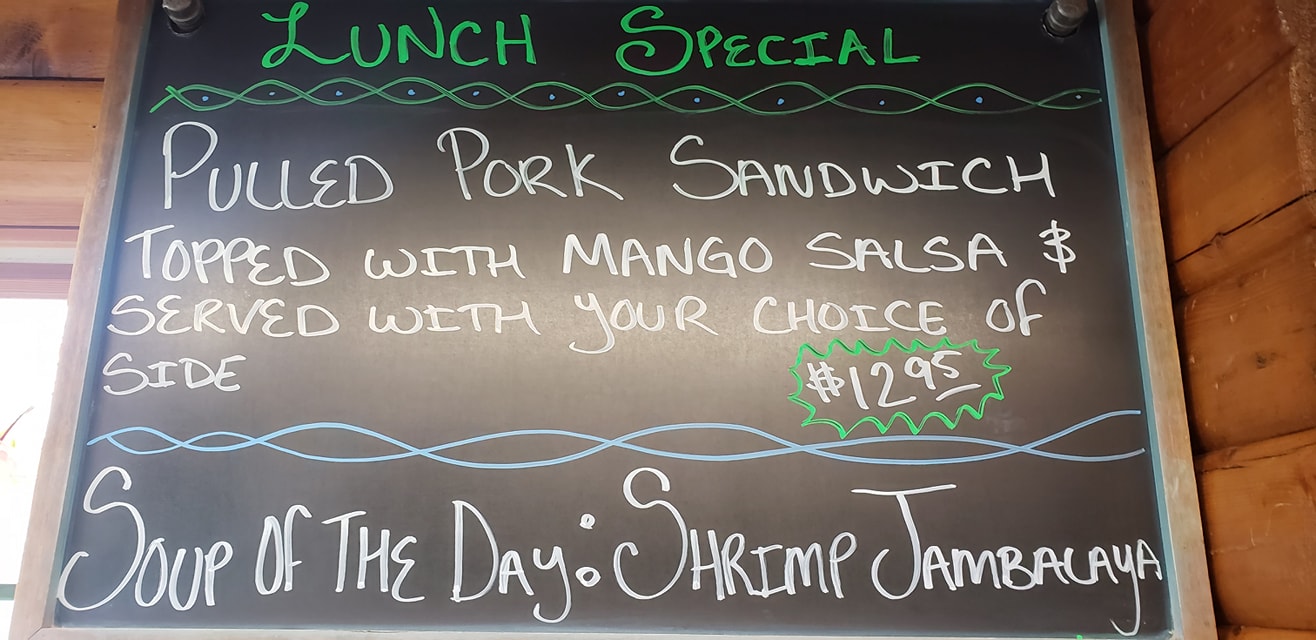 LUNCH SPECIAL
PULLED PORK SANDWICH
TOPPED WITH MANGO SALSA &
SERVED WITH YOUR CHOICE OF
SIDE
$12.95
SOUP OF THE DAY: SHRIMP JAMBALAYA